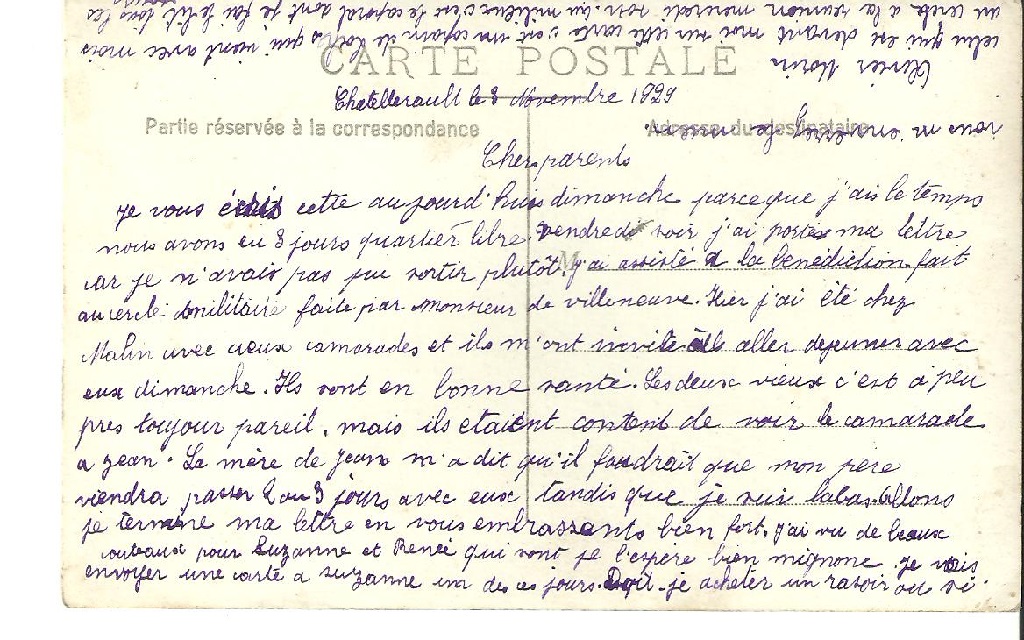 CARTE POSTALE
Chatellerault le 3 Novembre 1929
Partie réservée à la correspondance
Adresse du destinataire
Chers parents
je vous écris cette aujourd'huis dimanche parceque j'ais le temps
nous avons eu 3 jours quartier libre. Vendredi soir j'ai porter ma lettre
car je n'avais pas pu sortir plutôt, j'ai assisté a la bénédiction fait
au cercle militaire faite par Monsieur de villeneuve. Hier j'ai été chez
Malin avec deux camarades et ils m'ont invité aller dejeuner avec
eux dimanche. Ils sont en bonne santé. Les deux vieux c'est a peu
pres toujour pareil, mais ils etaient content de voir le camarade
a jean. La mère de Jean m'a dit qu'il foudrait que mon père
viendra passer 2 ou 3 jours avec eux tandis que je suis labas. Allons
je termine ma lettre en vous embrassants bien fort. j'ai vu de beaux
couteaux pour Suzanne et Renée qui sont je l'espere bien mignone. je vais
envoyer une carte a suzanne un de ces jours. Doit-je acheter un rasoir ou si
vous m'en
celui qui est devant moi sur cette carte c'est un copain de
qui vient avec mois
au cercle a la reunion mercredi soir. au milieux c'est le caporal dont je
Olivier Morin